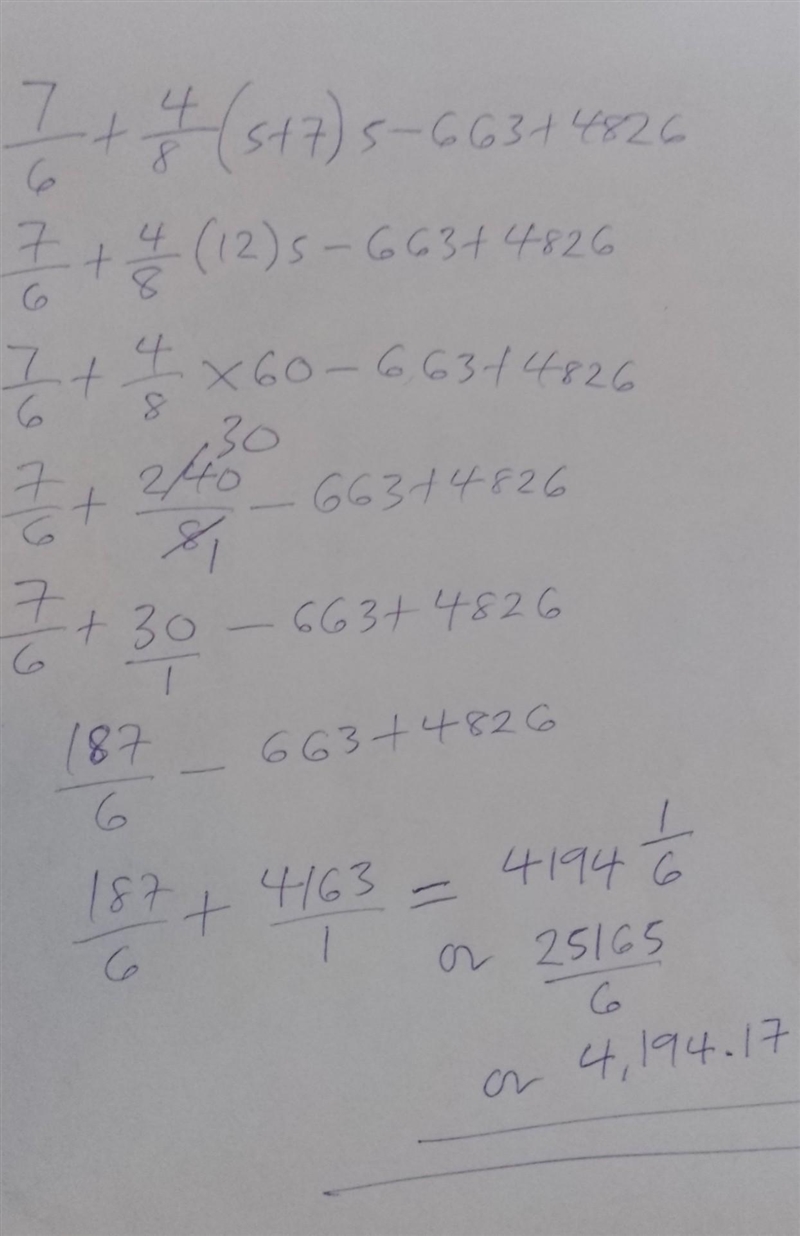 7/6 + 4/8 (5+7) 5 - 663 + 4826
7/6 + 4/8 (12) 5 - 663 + 4826
7/6 + 4/8 × 60 - 663 + 4826
30
7/6 + 240/8 1 - 663 + 4826
7/6 + 30/1 - 663 + 4826
187/6 - 663 + 4826
187/6 + 4163/1 = 4194 1/6
or 25165/6
or 4,194.17